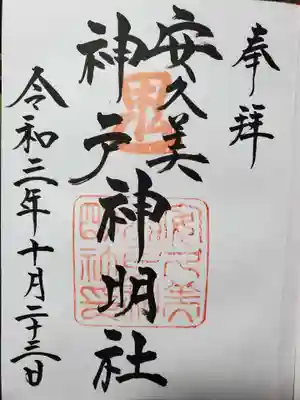 奉拝
安久美
神戸神明社
鬼
令和三年十月二十三日